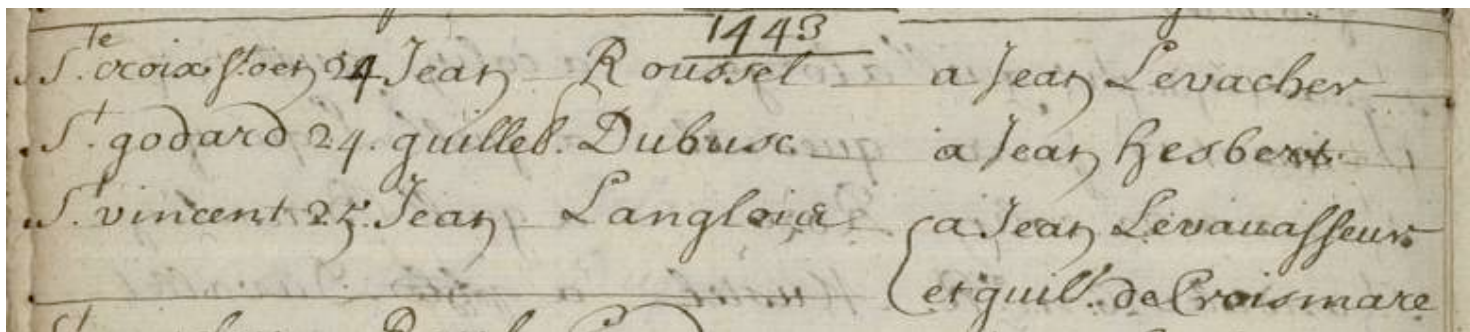 1443
Ste croix st oen 24 Jean Roussel a Jean Levacher
St godard 24. guilleb. Dubusc a Jean hesbert
St vincent 25. Jean Langlois a Jean Levavasseur
et guill. de Croismare